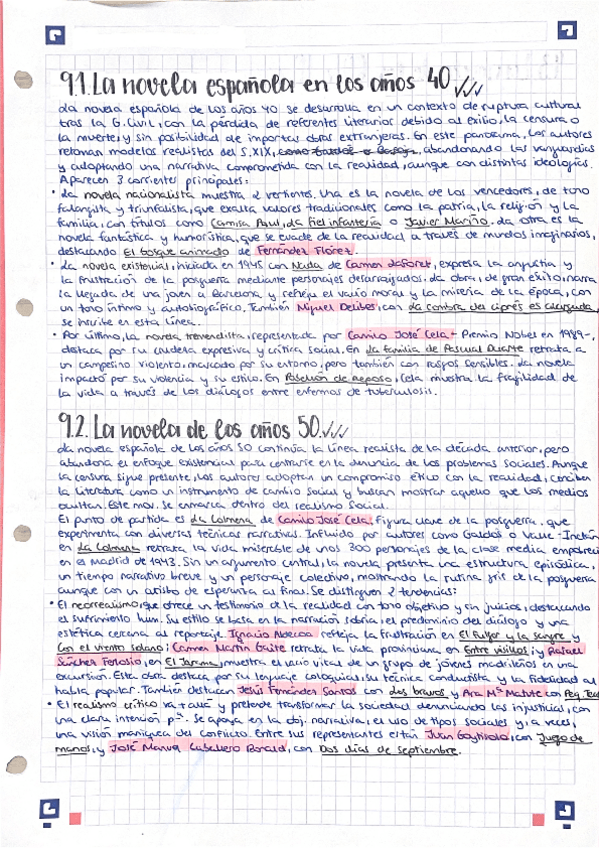 9.1. La novela española en los años 40
La novela española de los años 40 se desarrolla en un contexto de ruptura cultural
tras la G. Civil, con la pérdida de referentes literarios debido al exilio, la censura o
la muerte, y sin posibilidad de importar obras extranjeras. En este panorama, los autores
retoman modelos realistas del S.XIX, como Galdós o Baroja, abandonando las vanguardias
y adoptando una narrativa comprometida con la realidad, aunque con distintas ideologías.
Aparecen 3 corrientes principales:
• La novela nacionalista muestra 2 vertientes. Una es la novela de los vencedores, de tono
falangista y triunfalista, que exalta valores tradicionales como la patria, la religión y la
familia, con títulos como Camisa Azul, La fiel infantería o Javier Mariño. La otra es la
novela fantástica y humorística, que se evade de la realidad a través de mundos imaginarios,
destacando El bosque animado de Fernández Flórez.
• La novela existencial, iniciada en 1945 con Nada de Carmen Laforet, expresa la angustia y
la frustración de la posguerra mediante personajes desarraigados. La obra, de gran éxito, narra
la llegada de una joven a Barcelona, y refleja el vacío moral y la miseria de la época, con
un tono íntimo y autobiográfico. También Miguel Delibes, con La sombra del ciprés es alargada,
se inscribe en esta línea.
• Por último, la novela tremendista, representada por Camilo José Cela - Premio Nobel en 1989-,
destaca por su crudeza expresiva y crítica social. En La familia de Pascual Duarte retrata a
un campesino violento, marcado por su entorno, pero también con rasgos sensibles. La novela
impactó por su violencia y su estilo. En Pabellón de reposo, Cela muestra la fragilidad de
la vida a través de los diálogos entre enfermos de tuberculosis.
9.2. La novela de los años 50.
La novela española de los años 50 continúa la línea realista de la década anterior, pero
abandona el enfoque existencial para centrarse en la denuncia de los problemas sociales. Aunque
la censura sigue presente, los autores adoptan un compromiso ético con la realidad, conciben
la literatura como un instrumento de cambio social y buscan mostrar aquello que los medios
ocultan. Este mov. se enmarca dentro del realismo social.
El punto de partida es La Colmena de Camilo José Cela, figura clave de la posguerra, que
experimenta con diversas técnicas narrativas. Influido por autores como Galdós o Valle-Inclán,
en La Colmena retrata la vida miserable de unos 300 personajes de la clase media empobreci
en el Madrid de 1943. Sin un argumento central, la novela presenta una estructura episódica,
un tiempo narrativo breve y un personaje colectivo, mostrando la rutina gris de la posguerra
aunque con un atisbo de esperanza al final. Se distinguen 2 tendencias:
• El neorrealismo, que ofrece un testimonio de la realidad con tono objetivo y sin juicios, destacando
el sufrimiento hum. Su estilo se basa en la narración sobria, el predominio del diálogo y una
estética cercana al reportaje. Ignacio Aldecoa refleja la frustración en El fulgor y la sangre y
Con el viento solano; Carmen Martín Gaite retrata la vida provinciana en Entre visillos; y Rafael
Sánchez Ferlosio, en El Jarama, muestra el vacío vital de un grupo de jóvenes madrileños en una
excursión. Esta obra destaca por su lenguaje coloquial, su técnica conductista y la fidelidad al
habla popular. También destacan Jesús Fernández Santos con Los bravos y Ana Mª Matute con Peq. Tea
• El realismo crítico va + allá y pretende transformar la sociedad denunciando las injusticias, con
una clara intención pª. Se apoya en la obj. narrativa, el uso de tipos sociales y, a veces,
una visión maniquea del conflicto. Entre sus representantes están Juan Goytisolo, con Juego de
manos, y José Manuel Caballero Bonald, con Dos días de septiembre.